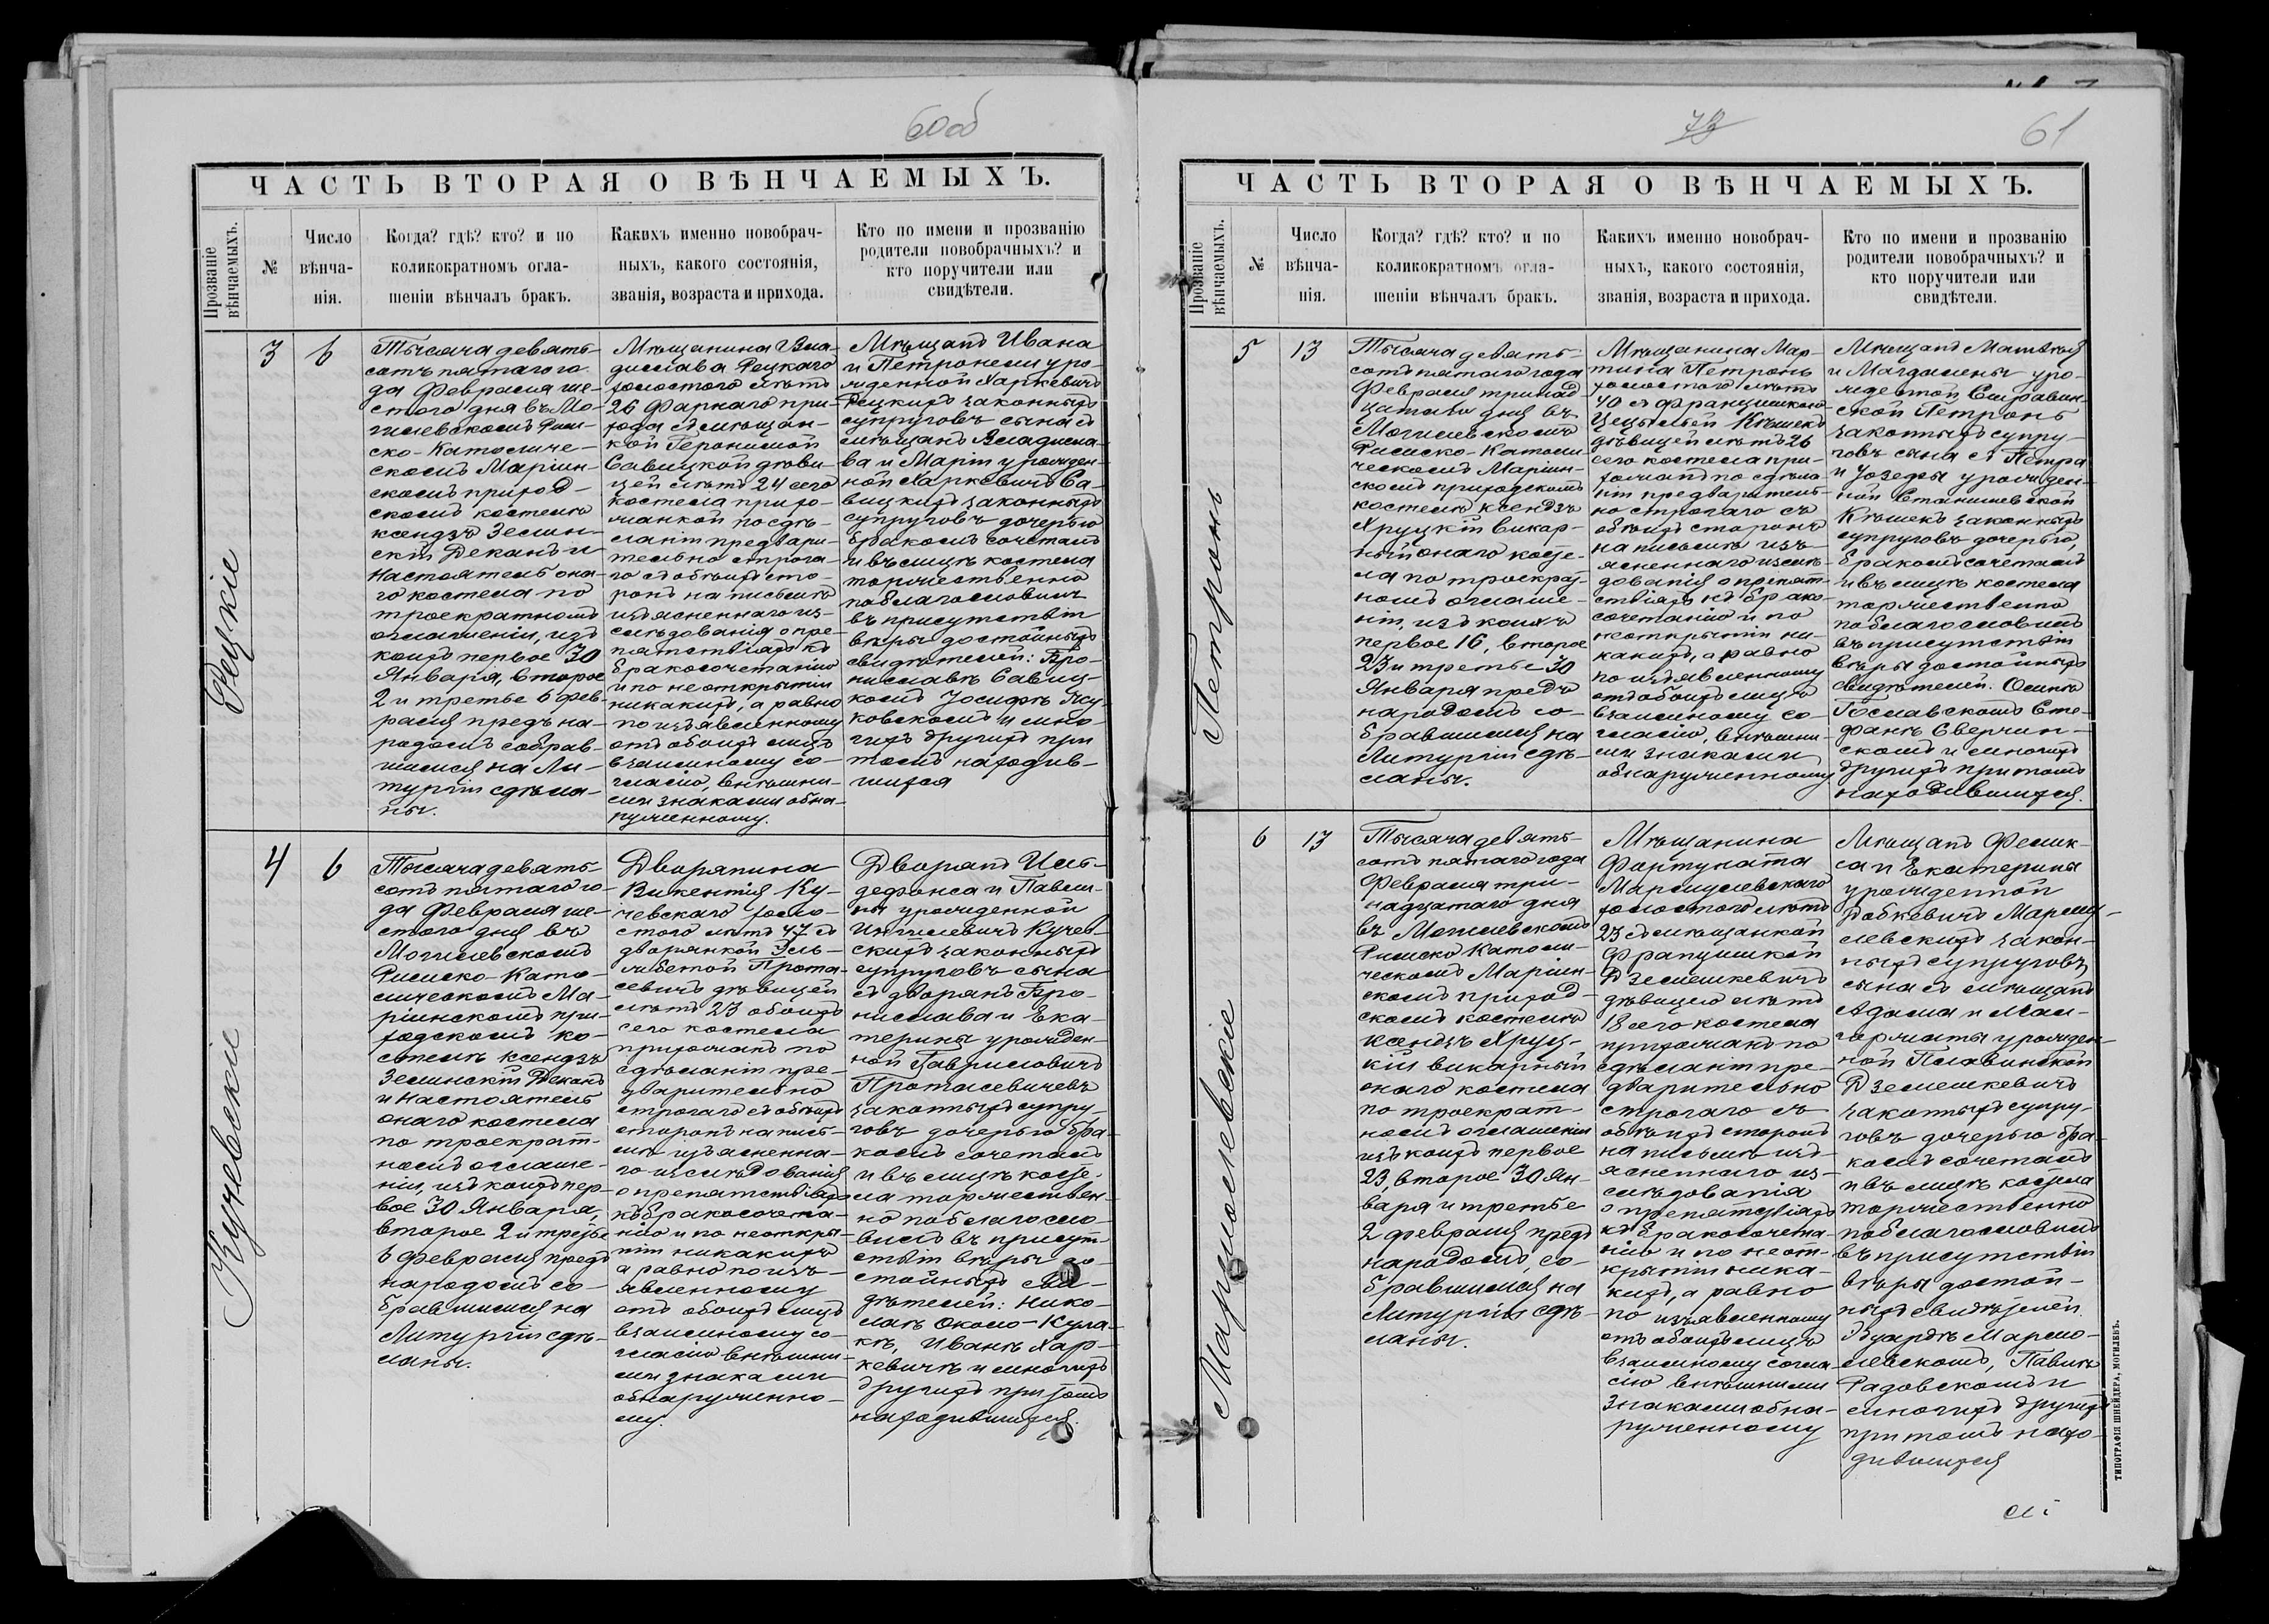 60об
ЧАСТЬ ВТОРАЯ О ВѢНЧАЕМЫХЪ.
Прозваніе вѣнчаемыхъ.
№
Число вѣнча-
нія.
Когда? гдѣ? кто? и по
коликократномъ огла-
шеніи вѣнчалъ бракъ.
Какихъ именно новобрач-
ныхъ, какого состоянія,
званія, возраста и прихода.
Кто по имени и прозванію
родители новобрачныхъ? и
кто поручители или
свидѣтели.
Рецкіе
3
6
Тысяча девять-
сотъ пятаго го-
да Февраля ше-
стого дня въ Мо-
гилевскомъ Рим-
ско-Католиче-
скомъ Маріин-
скомъ приход-
скомъ костелѣ
ксендзъ Зелин-
скій Деканъ и
Настоятель она-
го костела по
троекратномъ
оглашеніи, изъ
коихъ первое 30
Января, второе
2 и третье 6 Фев-
раля предъ на-
родомъ собрав-
шимся на Ли-
тургіи сдѣла-
ны.
Мѣщанина Вла-
дислава Рецкаго
холостого лѣтъ
26 Фарнаго при-
хода съ мѣщан-
кой Геронимой
Савицкой дѣви-
цей лѣтъ 24 сего
костела прихо-
жанкой по сдѣ-
ланіи предвари-
тельно строга-
го съ обѣихъ сто-
ронъ на письмѣ
изъясненнаго из-
слѣдованія о пре-
пятствіяхъ къ
бракосочетанію
и по неоткрытіи
никакихъ, а равно
по изъявленному
отъ обоихъ лицъ
взаимному со-
гласію, внѣшни-
ми знаками обна-
руженному.
Мѣщанъ Ивана
и Петронели уро-
жденной Харкевичъ
Рецкихъ законныхъ
супруговъ сына съ
мѣщанъ Владисла-
ва и Маріи урожден-
ной Харкевичъ Са-
вицкихъ законныхъ
супруговъ дочерью
бракомъ сочеталъ
и въ лицѣ костела
торжественно
поблагословилъ
въ присутствіи
вѣры достойныхъ
свидѣтелей: Бро-
ниславѣ Савиц-
комъ Іосифѣ
ковскомъ и мно-
гихъ другихъ при
томъ находив-
шихся
Кучевскіе
4
6
Тысяча девять-
сотъ пятаго го-
да Февраля ше-
стого дня въ
Могилевскомъ
Римско-Като-
лическомъ Ма-
ріинскомъ при-
ходскомъ ко-
стелѣ ксендзъ
Зелинскій Деканъ
и Настоятель
онаго костела
по троекрат-
номъ оглаше-
ніи, изъ коихъ пер-
вое 30 Января,
второе 2 и третье
6 Февраля предъ
народомъ со-
бравшимся на
Литургіи сдѣ-
ланы.
Дворянина
Викентія Ку-
чевскаго холо-
стого лѣтъ 47 съ
дворянкой Эль-
жбетой Прота-
севичъ дѣвицей
лѣтъ 23 обоихъ
сего костела
прихожанъ по
сдѣланіи пре-
дварительно
строгаго съ обѣихъ
сторонъ на пись-
мѣ изъясненна-
го изслѣдованія
о препятствіяхъ
къ бракосочета-
нію и по неоткры-
тіи никакихъ
а равно по изъ-
явленному
отъ обоихъ лицъ
взаимному со-
гласію внѣшни-
ми знаками
обнаруженно-
му.
Дворянъ Иль-
дефонса и Павли-
ны урожденной
Кучев-
скихъ законныхъ
супруговъ сына
съ дворянъ Бро-
нислава и Ека-
терины урожден-
ной Гавриловичъ
Протасевичевъ
законныхъ супру-
говъ дочерью бра-
комъ сочеталъ
и въ лицѣ косте-
ла торжествен-
но поблагосло-
вилъ въ присут-
ствіи вѣры до-
стойныхъ сви-
дѣтелей: Нико-
лаѣ Около-Кула-
кѣ, Иванѣ Хар-
кевичѣ и многихъ
другихъ при томъ
находившихся.
73
61
ЧАСТЬ ВТОРАЯ О ВѢНЧАЕМЫХЪ.
Прозваніе вѣнчаемыхъ.
№
Число вѣнча-
нія.
Когда? гдѣ? кто? и по
коликократномъ огла-
шеніи вѣнчалъ бракъ.
Какихъ именно новобрач-
ныхъ, какого состоянія,
званія, возраста и прихода.
Кто по имени и прозванію
родители новобрачныхъ? и
кто поручители или
свидѣтели.
Петронь
5
13
Тысяча девять-
сотъ пятаго года
Февраля тринад-
цатаго дня въ
Могилевскомъ
Римско-Католи-
ческомъ Маріин-
скомъ приходскомъ
костелѣ ксендзъ
Хруцкій викар-
ный онаго косте-
ла по троекрат-
номъ оглаше-
ніи, изъ коихъ
первое 16, второе
23 и третье 30
Января предъ
народомъ со-
бравшимся на
Литургіи сдѣ-
ланы.
Мѣщанина Мар-
тина Петронь
холостого лѣтъ
40 съ Францишкою
Кѣшекъ
дѣвицей лѣтъ 26
сего костела при-
хожанъ по сдѣла-
ніи предваритель-
но строгаго съ
обѣихъ сторонъ
на письмѣ изъ-
ясненнаго изслѣ-
дованія о препят-
ствіяхъ къ брако-
сочетанію и по
неоткрытіи ни-
какихъ, а равно
по изъявленному
отъ обоихъ лицъ
взаимному со-
гласію, внѣшни-
ми знаками
обнаруженному
Мѣщанъ Матвѣя
и Магдалены уро-
жденной Сыравин-
ской Петронь
законныхъ супру-
говъ сына съ Петра
и Іозефы урожден-
ной Станишевской
Кѣшекъ законныхъ
супруговъ дочерью,
бракомъ сочеталъ
и въ лицѣ костела
торжественно
поблагословилъ
въ присутствіи
вѣры достойныхъ
свидѣтелей: Осипѣ
Гославскомъ Сте-
фанѣ Сверчин-
скомъ и многихъ
другихъ при томъ
находившихся.
Маржмолевскіе
6
13
Тысяча девять-
сотъ пятаго года
Февраля три-
надцатаго дня
въ Могилевскомъ
Римско Католи-
ческомъ Маріин-
скомъ приход-
скомъ костелѣ
ксендзъ Хруц-
кій викарный
онаго костела
по троекрат-
номъ оглашеніи
изъ коихъ первое
23, второе 30 Ян-
варя и третье
2 февраля предъ
народомъ, со-
бравшимся на
Литургіи сдѣ-
ланы.
Мѣщанина
Фортуната
холостого лѣтъ
23 съ мѣщанкой
Францишкой
Дземешкевичъ
дѣвицею лѣтъ
18 сего костела
прихожанъ по
сдѣланіи пре-
дварительно
строгаго съ
обѣихъ сторонъ
на письмѣ изъ-
ясненнаго из-
слѣдованія
о препятствіяхъ
къ бракосочета-
нію и по неот-
крытіи ника-
кихъ, а равно
по изъявленному
отъ обоихъ лицъ
взаимному согла-
сію внѣшними
знаками обна-
руженному
Мѣщанъ Феликса и Екатерины
урожденной
закон-
ныхъ супруговъ
сына съ мѣщанъ
Адама и Мал-
горжаты урожден-
ной Плавинской
Дземешкевичъ
законныхъ супру-
говъ дочерью бра-
комъ сочеталъ
и въ лицѣ костела
торжественно
поблагословилъ
въ присутствіи
вѣры достой-
ныхъ свидѣтелей
Эдуардѣ Маржмо-
левскомъ, Павлѣ
Радовскомъ и
многихъ другихъ
при томъ нахо-
дившихся
ТИПОГРАФІЯ ШНЕЙДЕРА, МОГИЛЕВЪ.